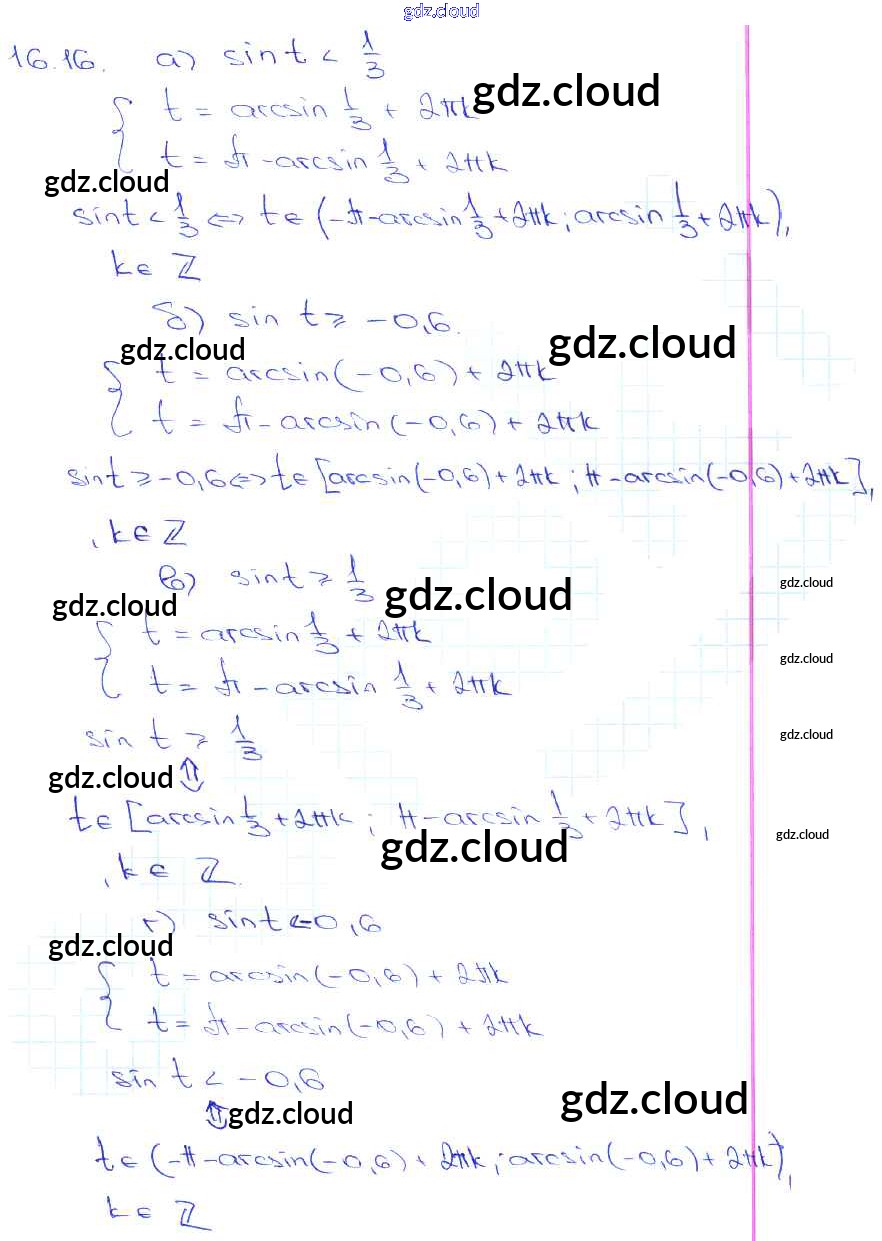 gdz.cloud
16.16. а) sin t < 1/3
{ t = arcsin 1/3 + 2πk
gdz.cloud
t = π - arcsin 1/3 + 2πk
gdz.cloud
sin t < 1/3 <=> t ∈ (-π - arcsin 1/3 + 2πk; arcsin 1/3 + 2πk),
k ∈ ℤ
б) sin t ⩾ -0,6.
gdz.cloud
gdz.cloud
{ t = arcsin(-0,6) + 2πk
t = π - arcsin(-0,6) + 2πk
sin t ⩾ -0,6 <=> t ∈ [arcsin(-0,6) + 2πk; π - arcsin(-0,6) + 2πk],
, k ∈ ℤ
в) sin t ⩾ 1/3
gdz.cloud
gdz.cloud
gdz.cloud
{ t = arcsin 1/3 + 2πk
gdz.cloud
t = π - arcsin 1/3 + 2πk
sin t ⩾ 1/3
gdz.cloud
gdz.cloud ⇕
t ∈ [arcsin 1/3 + 2πk; π - arcsin 1/3 + 2πk],
gdz.cloud
gdz.cloud
, k ∈ ℤ.
г) sin t < -0,6
gdz.cloud
{ t = arcsin(-0,6) + 2πk
t = π - arcsin(-0,6) + 2πk
sin t < -0,6
gdz.cloud
⇕ gdz.cloud
t ∈ (-π - arcsin(-0,6) + 2πk; arcsin(-0,6) + 2πk),
k ∈ ℤ